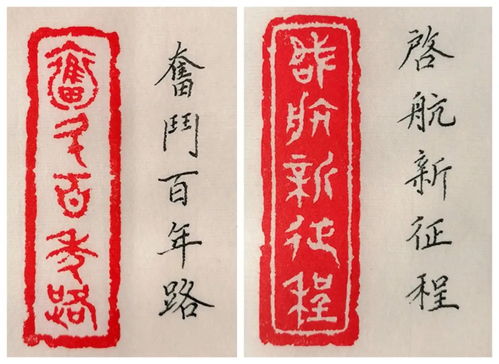 奮鬥百年路
奮鬥百年路
啓航新征程
啓航新征程